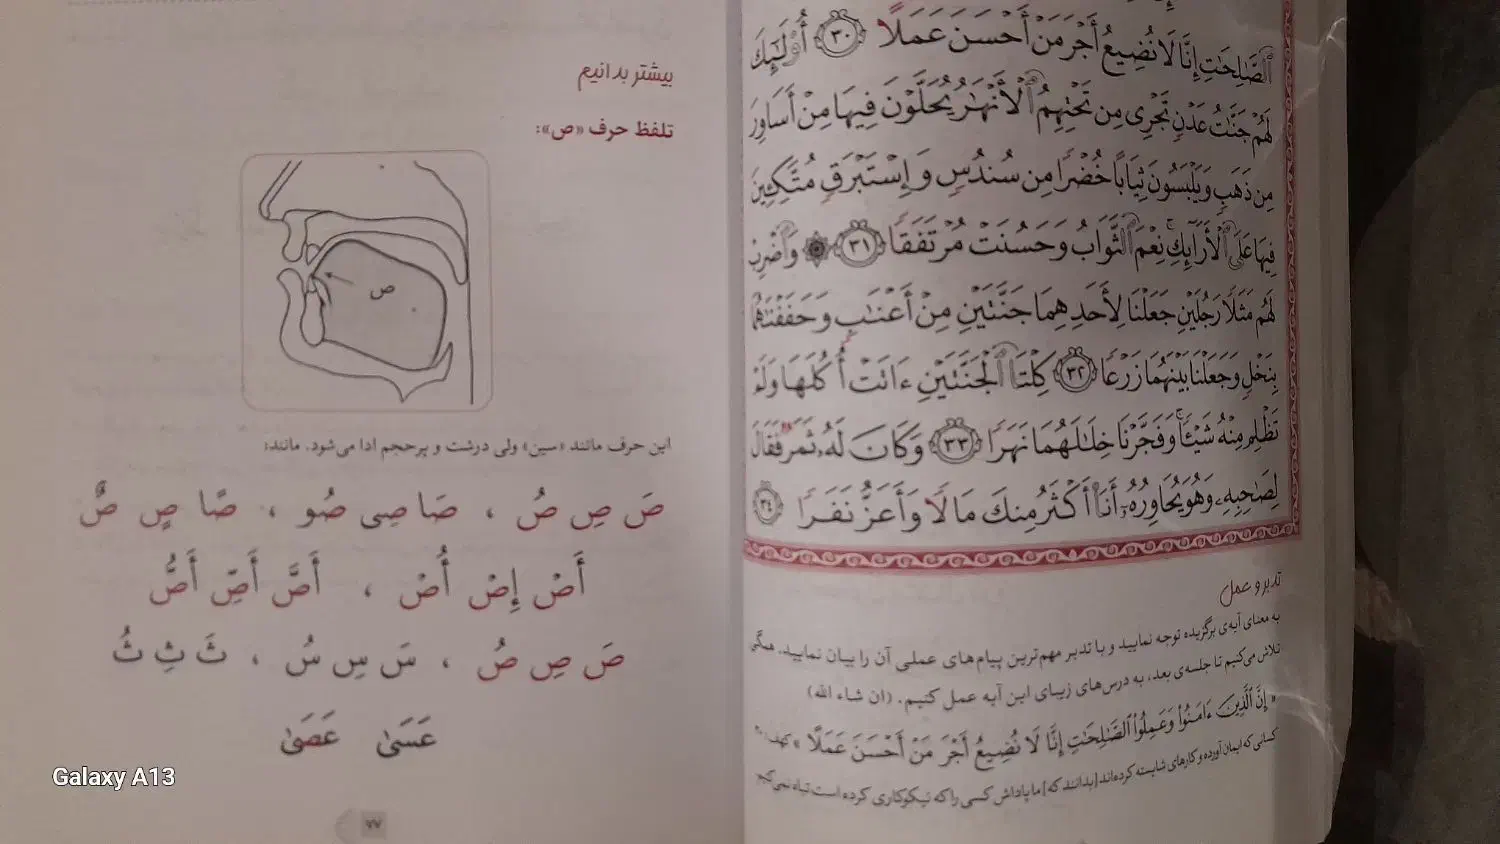 ٱلصَّـٰلِحَـٰتِ إِنَّا لَا نُضِيعُ أَجْرَ مَنْ أَحْسَنَ عَمَلًا ﴿٣٠﴾ أُو۟لَـٰٓئِكَ
لَهُمْ جَنَّـٰتُ عَدْنٍ تَجْرِى مِن تَحْتِهِمُ ٱلْأَنْهَـٰرُ يُحَلَّوْنَ فِيهَا مِنْ أَسَاوِرَ
مِن ذَهَبٍ وَيَلْبَسُونَ ثِيَابًا خُضْرًا مِن سُندُسٍ وَإِسْتَبْرَقٍ مُتَّكِـِٔينَ
فِيهَا عَلَى ٱلْأَرَآئِكِ نِعْمَ ٱلثَّوَابُ وَحَسُنَتْ مُرْتَفَقًا ﴿٣١﴾ ۞ وَٱضْرِبْ
لَهُم مَثَلًا رَجُلَيْنِ جَعَلْنَا لِأَحَدِهِمَا جَنَّتَيْنِ مِنْ أَعْنَـٰبٍ وَحَفَفْنَـٰهُمَا
بِنَخْلٍ وَجَعَلْنَا بَيْنَهُمَا زَرْعًا ﴿٣٢﴾ كِلْتَا ٱلْجَنَّتَيْنِ ءَاتَتْ أُكُلَهَا وَلَمْ
تَظْلِم مِنْهُ شَيْـًٔا وَفَجَّرْنَا خِلَـٰلَهُمَا نَهَرًا ﴿٣٣﴾ وَكَانَ لَهُۥ ثَمَرٌ فَقَالَ
لِصَـٰحِبِهِۦ وَهُوَ يُحَاوِرُهُۥٓ أَنَا۠ أَكْثَرُ مِنكَ مَالًا وَأَعَزُّ نَفَرًا ﴿٣٤﴾
تدبر و عمل
به معنای آیه‌ی برگزیده توجه نمایید و با تدبر مهم‌ترین پیام‌های عملی آن را بیان نمایید. همگی
تلاش می‌کنیم تا جلسه‌ی بعد، به درس‌های زیبای این آیه عمل کنیم. (ان شاء الله)
« إِنَّ ٱلَّذِينَ ءَامَنُوا۟ وَعَمِلُوا۟ ٱلصَّـٰلِحَـٰتِ إِنَّا لَا نُضِيعُ أَجْرَ مَنْ أَحْسَنَ عَمَلًا » کهف: ۳۰
کسانی که ایمان آورده و کارهای شایسته کرده‌اند [بدانند که] ما پاداش کسی را که نیکوکاری کرده است تباه نمی‌کنیم
بیشتر بدانیم
تلفظ حرف «ص»:
ص
این حرف مانند «سین» ولی درشت و پرحجم ادا می‌شود. مانند:
صَ صِ صُ ، صَا صِی صُو ، صًا صٍ صٌ
أَصْ إِصْ أُصْ ، أَصَّ أَصِّ أَصُّ
صَ صِ صُ ، سَ سِ سُ ، ثَ ثِ ثُ
عَسَىٰ عَصَىٰ
۷۷
Galaxy A13